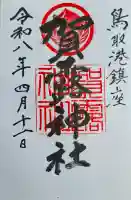 鳥取港鎮座
賀露神社
令和八年四月十二日